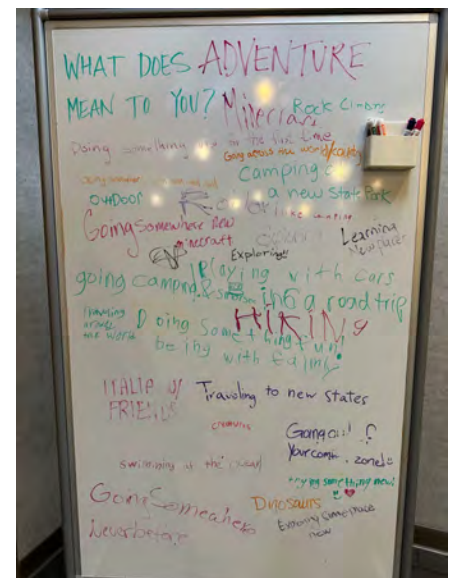 WHAT DOES ADVENTURE
MEAN TO YOU?
Minecraft
Rock Climbing
Doing something for the first time
Going across the world/country
camping
a new State Park
OutDoor
Going Somewhere New
minecraft
Learning
New places
Exploring!!
Playing with cars
going camping &
a road trip
HIKING
Traveling
around
the world
Doing Something fun
being with family
ITALIE W/
FRIENDS
Traveling to new states
creatures
Going out of
Your comfort zone!
swimming in the ocean
trying something new!
Going Somewhere
Never before
Dinosaurs
Exploring Someplace
new